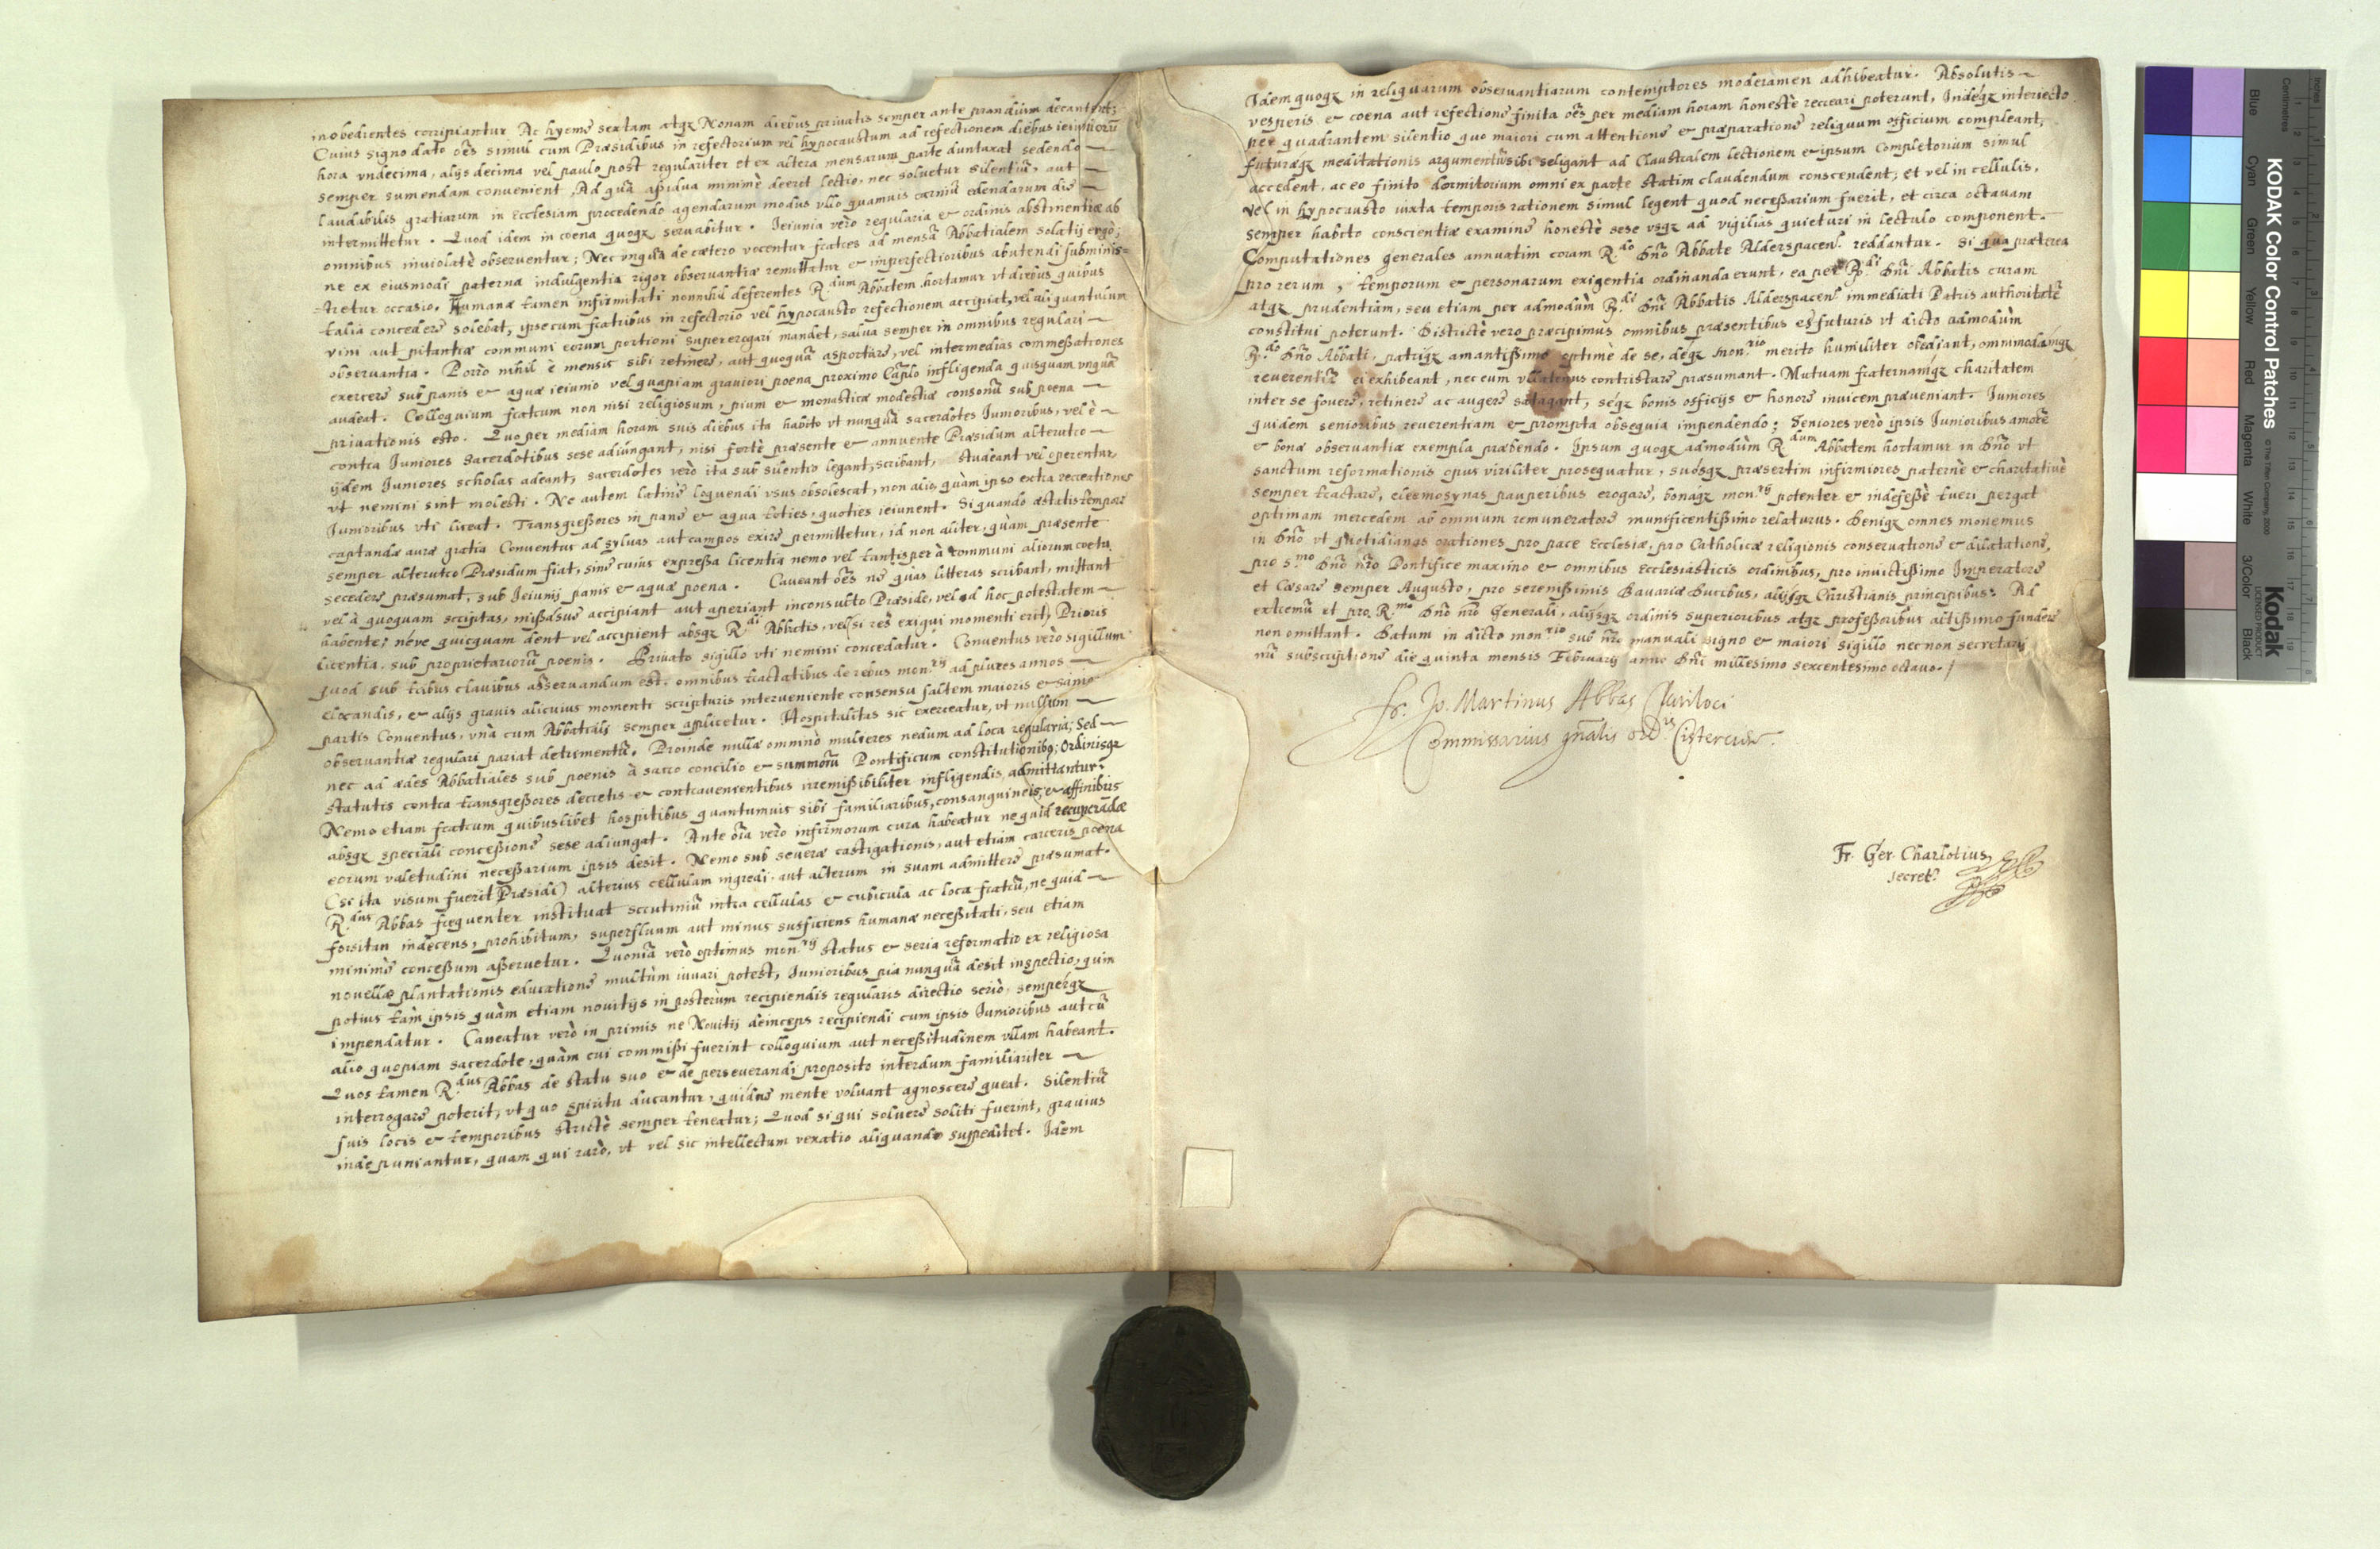 inobedientes corripiantur Ac hyeme sextam atqz Nonam diebus priuatis semper ante prandium decantent;
Cuius signo dato oẽs simul cum Præsidibus in refectorium vel hypocaustum ad refectionem diebus ieiuniorũ
hora vndecima, alijs decima vel paulo post regulariter et ex altera mensarum parte duntaxat sedendo
semper sumendam conuenient. Ad quã aßidua minimè deerit lectio, nec soluetur silentiũ, aut
laudabilis gratiarum in Ecclesiam procedendo agendarum modus vllo quamuis carniũ edendarum die
intermittetur. Quod idem in coena quoqz seruabitur. Ieiunia verò regularia et ordinis abstinentiæ ab
omnibus inuiolatè obseruentur; Nec vnquã de cætero vocentur fratres ad mensã Abbatialem solatij ergò;
ne ex eiusmodi paterna indulgentia rigor obseruantiæ remittatur et imperfectioribus abutendi subminis-
tretur occasio. Humanæ tamen infirmitati nonnihil deferentes R.dum Abbatem hortamur vt diebus quibus
talia concedere solebat, ipse cum fratribus in refectorio vel hypocausto refectionem accipiat, vel aliquantulum
vini aut pitantiæ communi eorum portioni supererogari mandet, salua semper in omnibus regulari
obseruantia. Porrò nihil è mensis sibi retinere, aut quoquã asportare, vel intermedias commeßationes
exercere sub panis et aquæ ieiunio vel quapiam grauiori poena proximo Capľo infligenda quisquam vnquã
audeat. Colloquium fratrum non nisi religiosum, pium et monasticæ modestiæ consonũ sub poena
priuationis esto. Quo per mediam horam suis diebus ita habito vt nunquã sacerdotes Iunioribus, vel è
contra Iuniores Sacerdotibus sese adiungant, nisi fortè præsente et annuente Præsidum alterutro
ijdem Iuniores scholas adeant, sacerdotes verò ita sub silentio legant, scribant, studeant vel operentur,
vt nemini sint molesti. Ne autem latine loquendi vsus obsolescat, non alio quàm ipso extra recreationes
Iunioribus vti liceat. Transgreßores in pane et aqua toties, quoties ieiunent. Si quando æstatis tempore
captandæ auræ gratia Conuentus ad syluas aut campos exire permittetur, id non aliter, quàm præsente
semper alterutro Præsidum fiat, sine cuius expreßa licentia nemo vel tantisper à communi aliorum coetu
secedere præsumat, sub Ieiunij panis et aquæ poena. Caueant oẽs ne quas litteras scribant, mittant
vel à quoquam scriptas, mißasue accipiant aut aperiant inconsulto Præside, vel ad hoc potestatem
habente; néve quicquam dent vel accipient absqz R.di Abbatis, vel (si res exigui momenti erit) Prioris
licentia, sub proprietariorũ poenis. Priuato sigillo vti nemini concedatur. Conuentus verò sigillum
quod sub tribus clauibus aßeruandum est, omnibus tractatibus de rebus mon.rij ad plures annos
elocandis, et alijs grauis alicuius momenti scripturis interueniente consensu saltem maioris et sanio-
partis Conuentus, vnà cum Abbatialis semper applicetur. Hospitalitas sic exerceatur, vt nullum
obseruantiæ regulari pariat detrimentũ. Proinde nullæ omninò mulieres nedum ad loca regularia; Sed
nec ad ædes Abbatiales sub poenis à sacro concilio et summorũ Pontificum constitutionibq; Ordinisqz
statutis contra transgreßores decretis et contrauenientibus irremißibiliter infligendis admittantur.
Nemo etiam fratrum quibuslibet hospitibus quantumuis sibi familiaribus, consanguineis, et affinibus
absqz speciali conceßione sese adiungat. Ante oĩa verò infirmorum cura habeatur ne quid recuperãdæ
eorum valetudini neceßarium ipsis desit. Nemo sub seueræ castigationis, aut etiam carceris poena
(si ita visum fuerit Præsidi) alterius cellulam ingredi, aut alterum in suam admittere præsumat.
R.dus Abbas frequenter instituat scrutiniũ intra cellulas et cubicula ac loca fratrũ, ne quid
forsitan indecens, prohibitum, superfluum aut minus sufficiens humanæ neceßitati, seu etiam
minimè conceßum aßeruetur. Quoniã verò optimus mon.rij status et seria reformatio ex religiosa
nouellæ plantationis educatione multùm iuuari potest, Iunioribus pia nunquã desit inspectio, quin
potius tàm ipsis quàm etiam nouitijs in posterùm recipiendis regularis directio seriò, sempérqz
impendatur. Caueatur verò in primis ne Nouitij deinceps recipiendi cum ipsis Iunioribus aut cũ
alio quopiam sacerdote, quàm cui commißi fuerint colloquium aut neceßitudinem vllam habeant.
Quos tamen R.dus Abbas de statu suo et de perseuerandi proposito interdum familiariter
interrogare poterit, vt quo spiritu ducantur, quidue mente voluant agnoscere queat. Silentiũ
suis locis et temporibus strictè semper teneatur; Quod si qui soluere soliti fuerint, grauius
inde puniantur, quam qui rarò, vt vel sic intellectum vexatio aliquando suppeditet. Idem
Idem quoqz in reliquarum obseruantiarum contemptores moderamen adhibeatur. Absolutis
vesperis et coena aut refectione finita oẽs per mediam horam honestè recreari poterunt, Indéqz interiecto
per quadrantem silentio quo maiori cum attentione et præparatione reliquum officium compleant,
futuræqz meditationis argumentũ sibi seligant ad Claustralem lectionem et ipsum Completorium simul
accedent, ac eo finito dormitorium omni ex parte statim claudendum conscendent; et vel in cellulis,
vel in hypocausto iuxta temporis rationem simul legent quod neceßarium fuerit, et circa octauam
semper habito conscientiæ examine honestè sese vsqz ad vigilias quieturi in lectulo component.
Computationes generales annuatim coram R.do Dño Abbate Alderspacenſ. reddantur. Si qua præterea
pro rerum, temporum et personarum exigentia ordinanda erunt, ea per R.di Dñi Abbatis curam
atqz prudentiam, seu etiam per admodùm R.di Dñi Abbatis Alderspacenſ immediati Patris authoritatẽ
constitui poterunt. Districtè vero præcipimus omnibus præsentibus et futuris vt dicto admodùm
R.do Dño Abbati, patriqz amantißimo optimè de se, déqz mon.rio merito humiliter obediant, omnimodámqz
reuerentiã ei exhibeant, nec eum vllatenus contristare præsumant. Mutuam fraternamqz charitatem
inter se fouere, retinere ac augere satagant, séqz bonis officijs et honore inuicem præueniant. Iuniores
quidem senioribus reuerentiam et prompta obsequia impendendo; Seniores verò ipsis Iunioribus amorẽ
et bonæ obseruantiæ exempla præbendo. Ipsum quoqz admodùm R.dum Abbatem hortamur in Dño vt
sanctum reformationis opus viriliter prosequatur, suósqz præsertim infirmiores paternè et charitatiuè
semper tractare, eleemosynas pauperibus erogare, bonaqz mon.rij potenter et indefeßè tueri pergat
optimam mercedem ab omnium remuneratore munificentißimo relaturus. Deniqz omnes monemus
in Dño vt quotidianas orationes pro pace Ecclesiæ, pro Catholicæ religionis conseruatione et dilatatione,
pro S.mo Dño ñro Pontifice maximo et omnibus Ecclesiasticis ordinibus, pro inuictißimo Imperatore
et Cæsare semper Augusto, pro serenißimis Bauariæ Ducibus, alijsqz Christianis principibus: Ad
extremũ et pro R.mo Dño ñro Generali, alijsqz ordinis superioribus atqz profeßoribus altißimo fundere
non omittant. Datum in dicto mon.rio sub ñro manuali signo et maiori sigillo nec non secretarij
ñri subscriptione die quinta mensis Februarij anno Dñi millesimo sexcentesimo octauo./
fr. Jo. Martinus Abbas Clariloci
Commissarius gñalis ordis Cistercien.
Fr. Ger. Charlotius
secret.
KODAK Color Control Patches
©The Tiffen Company, 2000
Kodak
LICENSED PRODUCT
Blue Cyan Green Yellow Red Magenta White 3/Color Black
Inches
Centimetres